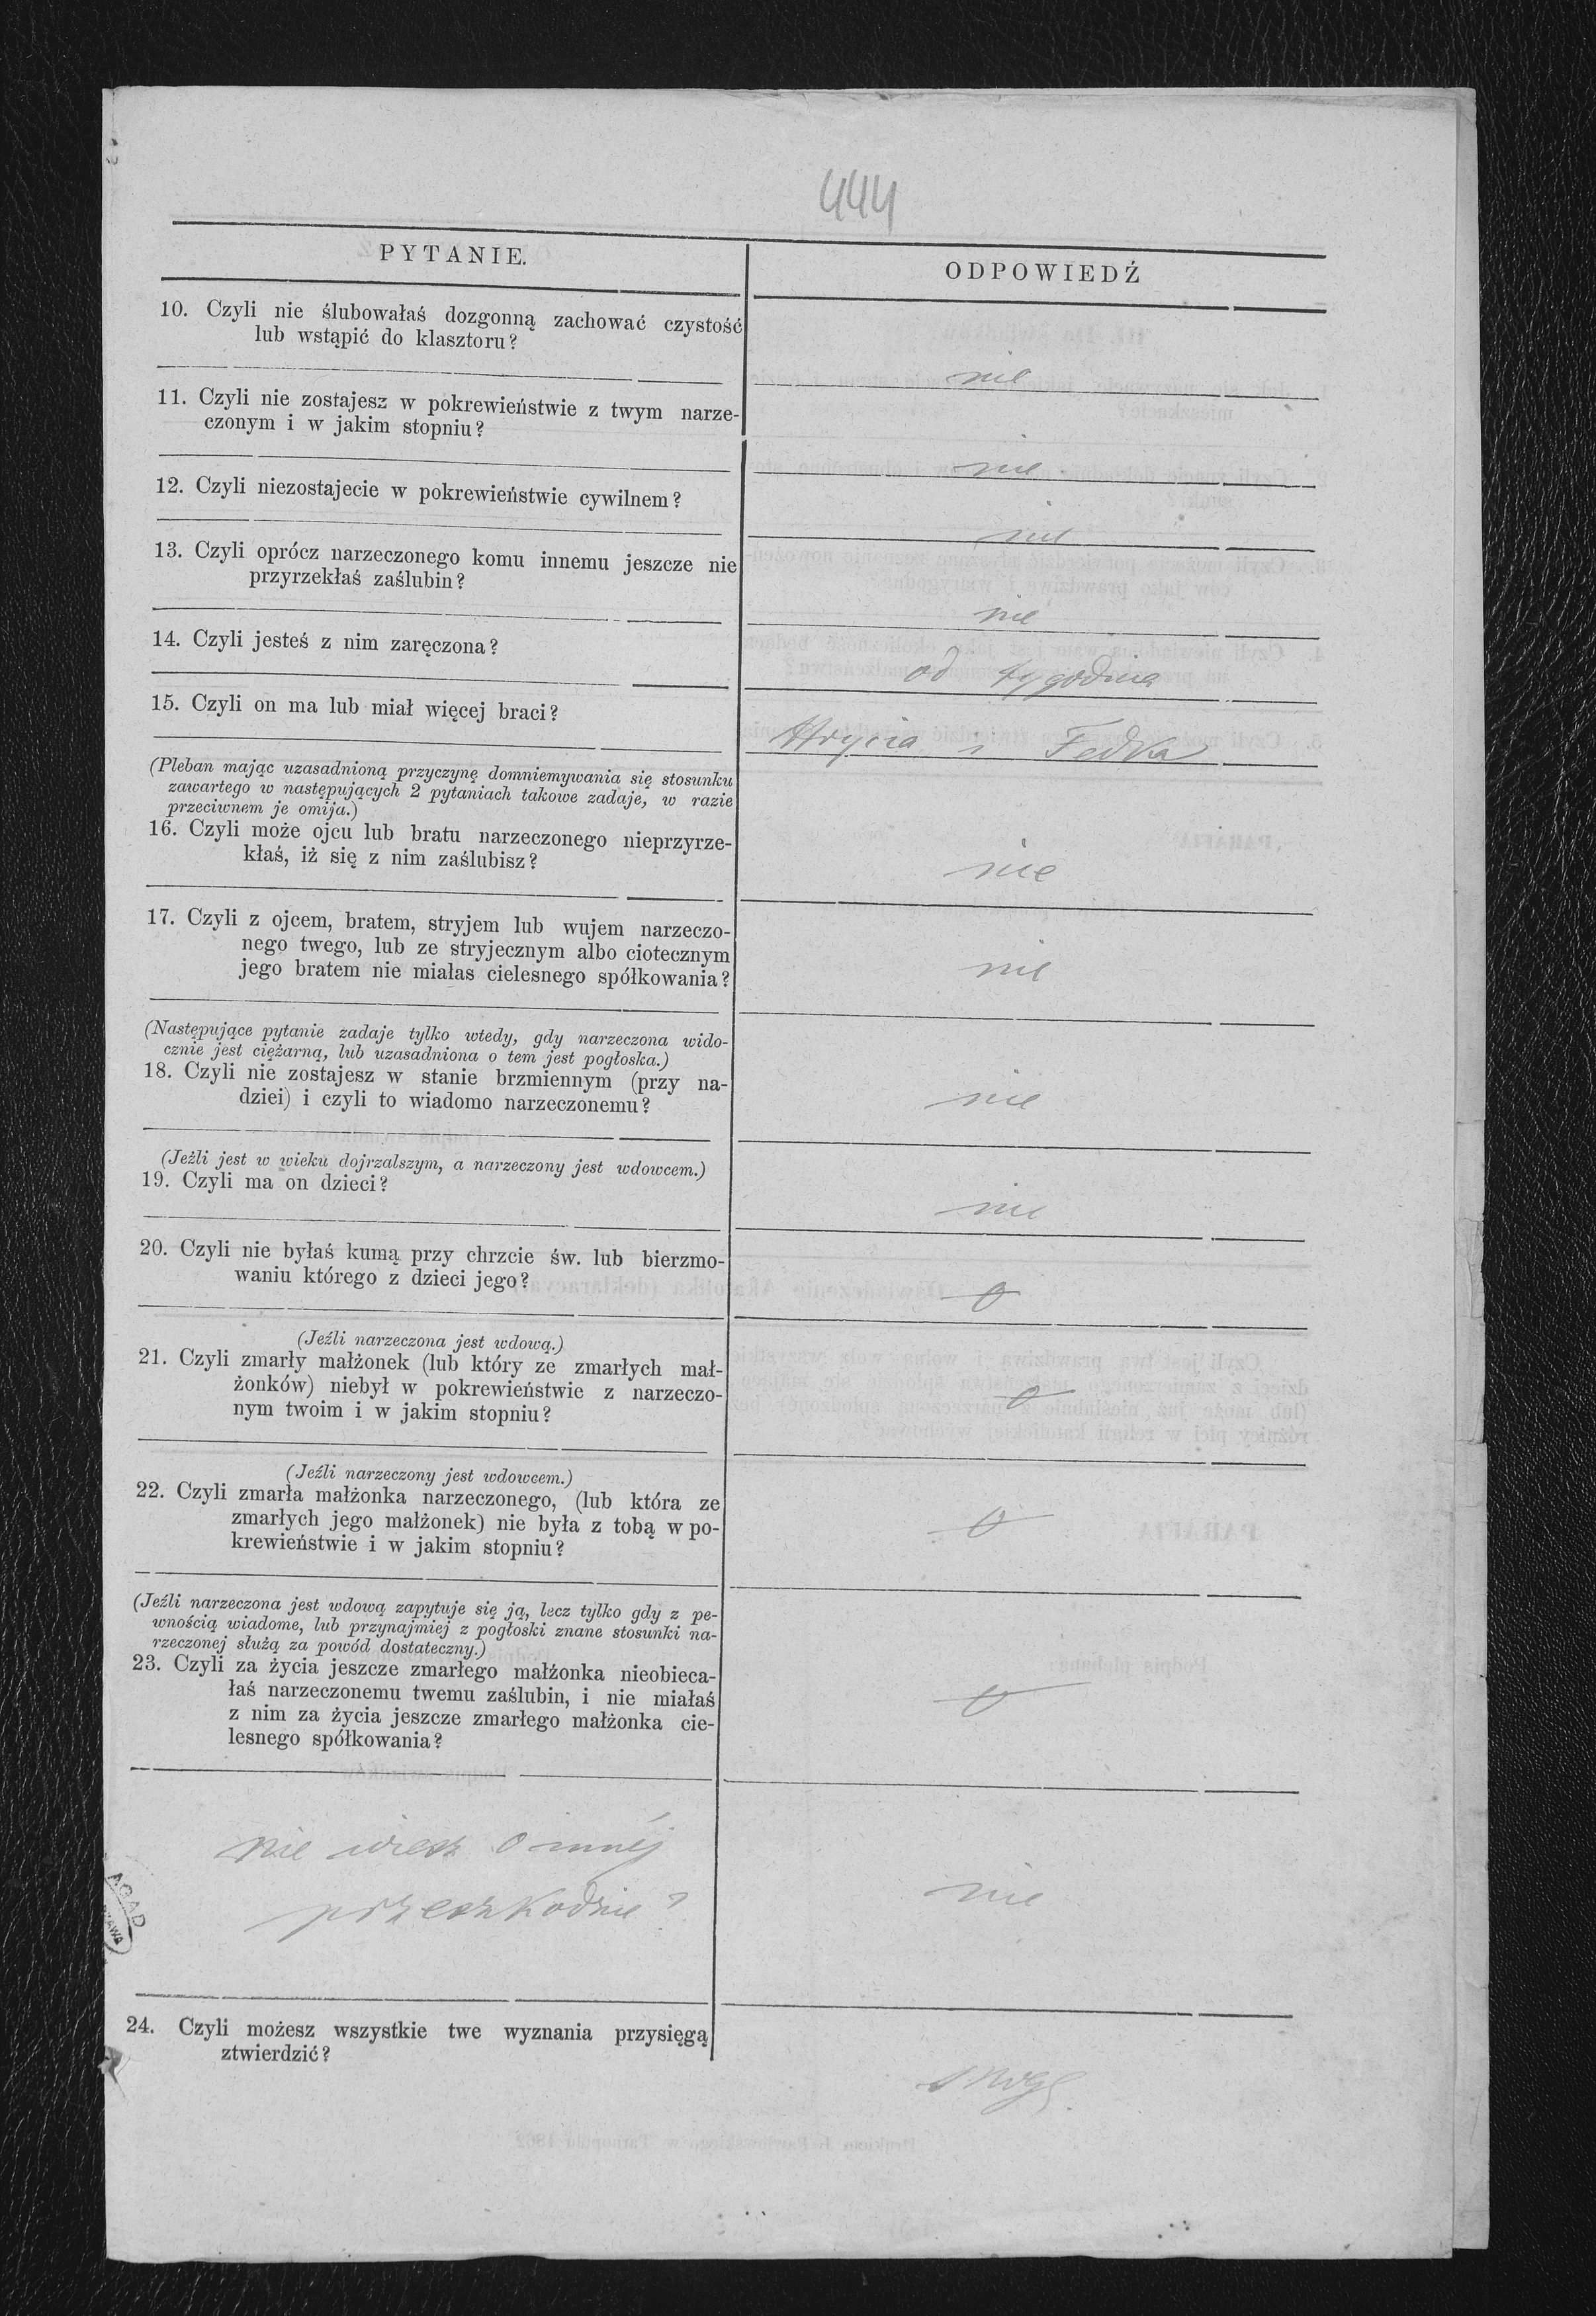 444
PYTANIE.
ODPOWIEDŹ
10. Czyli nie ślubowałaś dozgonną zachować czystość
lub wstąpić do klasztoru?
nie
11. Czyli nie zostajesz w pokrewieństwie z twym narze-
czonym i w jakim stopniu?
nie
12. Czyli niezostajecie w pokrewieństwie cywilnem?
nie
13. Czyli oprócz narzeczonego komu innemu jeszcze nie
przyrzekłaś zaślubin?
nie
14. Czyli jesteś z nim zaręczona?
od tygodnia
15. Czyli on ma lub miał więcej braci?
Hrycia i Fedka
(Pleban mając uzasadnioną przyczynę domniemywania się stosunku
zawartego w następujących 2 pytaniach takowe zadaje, w razie
przeciwnem je omija.)
16. Czyli może ojcu lub bratu narzeczonego nieprzyrze-
kłaś, iż się z nim zaślubisz?
nie
17. Czyli z ojcem, bratem, stryjem lub wujem narzeczo-
nego twego, lub ze stryjecznym albo ciotecznym
jego bratem nie miałas cielesnego spółkowania?
nie
(Następujące pytanie zadaje tylko wtedy, gdy narzeczona wido-
cznie jest ciężarną, lub uzasadniona o tem jest pogłoska.)
18. Czyli nie zostajesz w stanie brzmiennym (przy na-
dziei) i czyli to wiadomo narzeczonemu?
nie
(Jeżli jest w wieku dojrzalszym, a narzeczony jest wdowcem.)
19. Czyli ma on dzieci?
nie
20. Czyli nie byłaś kumą przy chrzcie św. lub bierzmo-
waniu którego z dzieci jego?
0
(Jeźli narzeczona jest wdową.)
21. Czyli zmarły małżonek (lub który ze zmarłych mał-
żonków) niebył w pokrewieństwie z narzeczo-
nym twoim i w jakim stopniu?
0
(Jeźli narzeczony jest wdowcem.)
22. Czyli zmarła małżonka narzeczonego, (lub która ze
zmarłych jego małżonek) nie była z tobą w po-
krewieństwie i w jakim stopniu?
0
(Jeźli narzeczona jest wdową zapytuje się ją, lecz tylko gdy z pe-
wnością wiadome, lub przynajmiej z pogłoski znane stosunki na-
rzeczonej służą za powód dostateczny.)
23. Czyli za życia jeszcze zmarłego małżonka nieobieca-
łaś narzeczonemu twemu zaślubin, i nie miałaś
z nim za życia jeszcze zmarłego małżonka cie-
lesnego spółkowania?
0
nie wiesz o innéj
przeszkodzie?
nie
24. Czyli możesz wszystkie twe wyznania przysięgą
ztwierdzić?
mogę.
AGAD